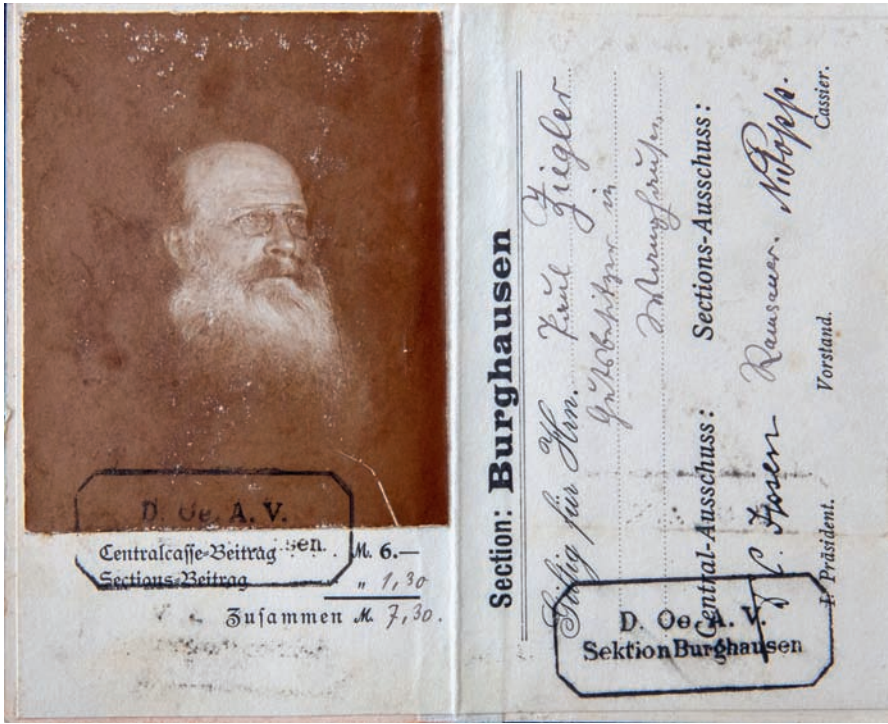 D. Oe. A. V.
sen.
Centralcasse-Beitrag . . . M. 6.—
Sections-Beitrag „ 1,30
Zusammen M. 7,30.
Section: Burghausen
Gültig für Hrn. Paul Ziegler
Gutsbesitzer in
Central-Ausschuss: Sections-Ausschuss:
Ramsauer.
I. Präsident. Vorstand. Cassier.
D. Oe. A. V.
Sektion Burghausen